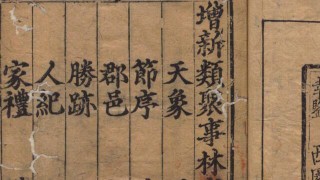 增新類聚事林
天象
節序
郡邑
勝跡
人紀
家禮